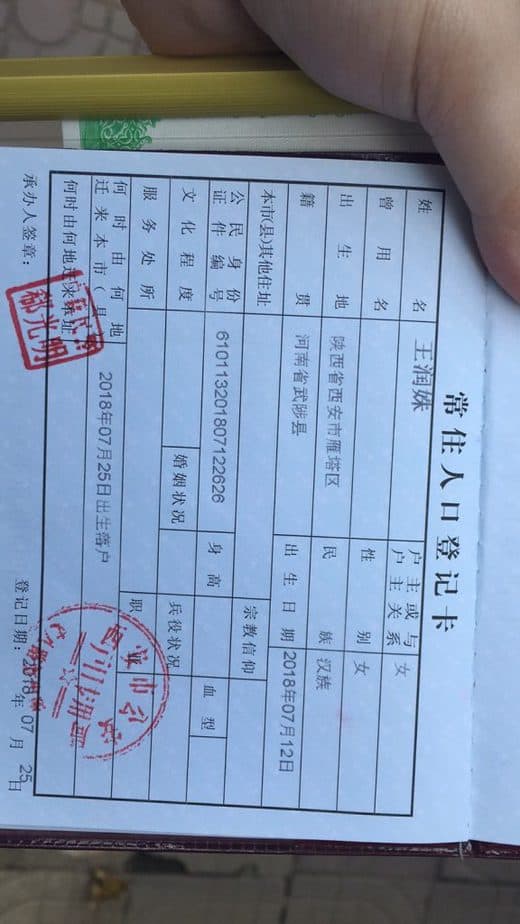 常住人口登记卡
姓名 王润姝 户主或与户主关系 女
曾用名 性别 女
出生地 陕西省西安市雁塔区 民族 汉族
籍贯 河南省武陟县 出生日期 2018年07月12日
本市(县)其他住址 宗教信仰
公民身份证件编号 610113201807122626 身高 血型
文化程度 婚姻状况 兵役状况
服务处所 职
何时由何地迁来本市(县) 2018年07月25日出生落户
何时由何地迁来本址
承办人签章: 登记日期: 2018年07月25日